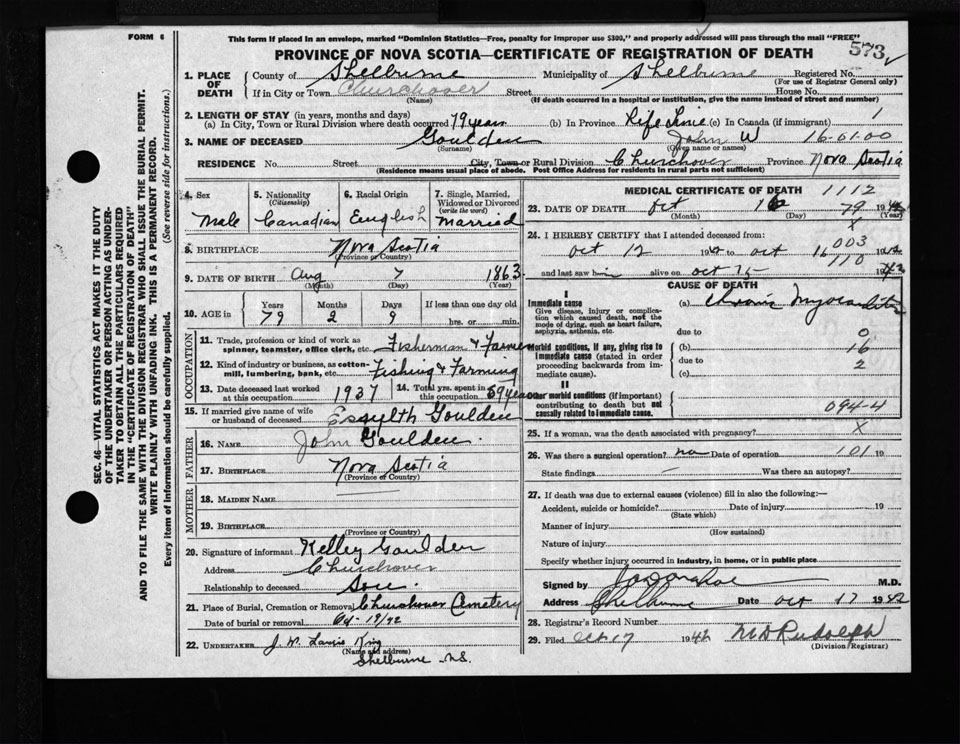 FORM 6
This form if placed in an envelope, marked "Dominion Statistics—Free, penalty for improper use $300," and properly addressed will pass through the mail "FREE"
PROVINCE OF NOVA SCOTIA—CERTIFICATE OF REGISTRATION OF DEATH
573
1. PLACE OF DEATH County of Shelburne Municipality of Shelburne Registered No.
(For use of Registrar General only)
If in City or Town Churchover Street House No.
(Name) (If death occurred in a hospital or institution, give the name instead of street and number)
2. LENGTH OF STAY (in years, months and days)
(a) In City, Town or Rural Division where death occurred 79 years (b) In Province Life Time (c) In Canada (if immigrant) 1
3. NAME OF DECEASED Goulden John W 16-01-00
(Surname) (Given name or names)
RESIDENCE No. Street City, Town or Rural Division Churchover Province Nova Scotia
(Residence means usual place of abode. Post Office Address for residents in rural parts not sufficient)
4. Sex Male
5. Nationality (Citizenship) Canadian
6. Racial Origin English
7. Single, Married, Widowed or Divorced (write the word) Married
8. BIRTHPLACE Nova Scotia
(Province or Country)
9. DATE OF BIRTH Aug 7 1863
(Month) (Day) (Year)
10. AGE in Years Months Days If less than one day old
79 2 9 hrs. or min.
OCCUPATION
11. Trade, profession or kind of work as spinner, teamster, office clerk, etc. Fisherman & Farmer
12. Kind of industry or business, as cotton-mill, lumbering, bank, etc. Fishing & Farming
13. Date deceased last worked at this occupation 1937
14. Total yrs. spent in this occupation 59 years
15. If married give name of wife or husband of deceased Goulden
FATHER
16. NAME John Goulden.
17. BIRTHPLACE Nova Scotia
(Province or Country)
MOTHER
18. MAIDEN NAME
19. BIRTHPLACE
(Province or Country)
20. Signature of informant Kelley Goulden
Address Churchover
Relationship to deceased Son
21. Place of Burial, Cremation or Removal Churchover Cemetery
Date of burial or removal Oct - 19/42
22. UNDERTAKER J. W. King
(Name and address)
Shelburne N.S.
MEDICAL CERTIFICATE OF DEATH 1112
23. DATE OF DEATH Oct 16 79 1942
(Month) (Day)
24. I HEREBY CERTIFY that I attended deceased from: X
Oct 12 1942 to Oct 16 003 1942
110
and last saw him alive on Oct 15 1942
CAUSE OF DEATH
I
Immediate cause
Give disease, injury or complication which caused death, not the mode of dying, such as heart failure, asphyxia, asthenia, etc.
(a) Chronic Myocarditis
due to 0
Morbid conditions, if any, giving rise to immediate cause (stated in order proceeding backwards from immediate cause).
(b) 16
due to 2
(c)
II
Other morbid conditions (if important) contributing to death but not causally related to immediate cause.
094-4
25. If a woman, was the death associated with pregnancy? X
26. Was there a surgical operation? no Date of operation 101 19
State findings — Was there an autopsy?
27. If death was due to external causes (violence) fill in also the following:—
Accident, suicide or homicide? Date of injury 19
(State which)
Manner of injury
(How sustained)
Nature of injury
Specify whether injury occurred in industry, in home, or in public place
Signed by M.D.
Address Shelburne Date Oct 17 1942
28. Registrar's Record Number
29. Filed Oct 17 1942 M D Rudolph
(Division Registrar)
SEC. 46—VITAL STATISTICS ACT MAKES IT THE DUTY
OF THE UNDERTAKER OR PERSON ACTING AS UNDER-
TAKER TO OBTAIN ALL THE PARTICULARS REQUIRED
IN THE "CERTIFICATE OF REGISTRATION OF DEATH"
AND TO FILE THE SAME WITH THE DIVISION REGISTRAR WHO SHALL ISSUE THE BURIAL PERMIT.
WRITE PLAINLY WITH UNFADING INK. THIS IS A PERMANENT RECORD.
Every item of information should be carefully supplied. (See reverse side for instructions.)